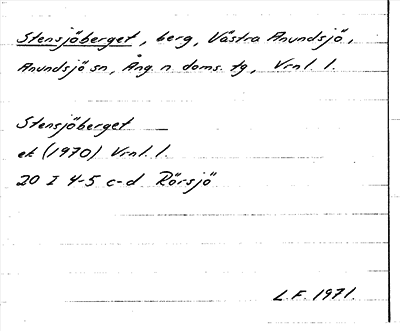 Stensjöberget, berg, Västra Anundsjö,
Anundsjö sn, Ång. n. doms. tg, Vrnl. l.
Stensjöberget
ek (1970) Vrnl. l.
20 I 4-5 c-d Rörsjö
L.F. 1971.